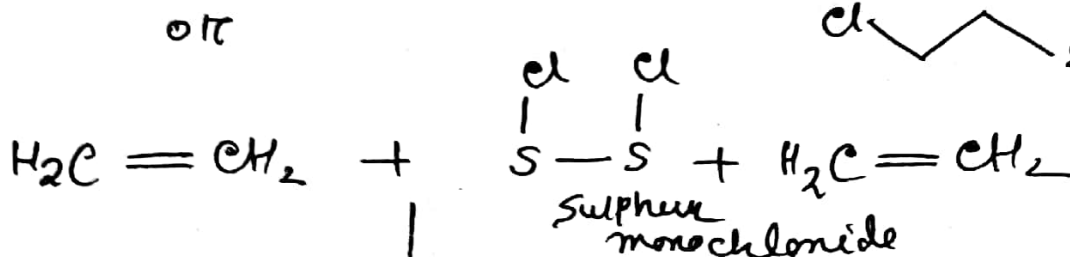 or
Cl
Cl Cl
H2C = CH2 + S — S + H2C = CH2
Sulphur
monochloride